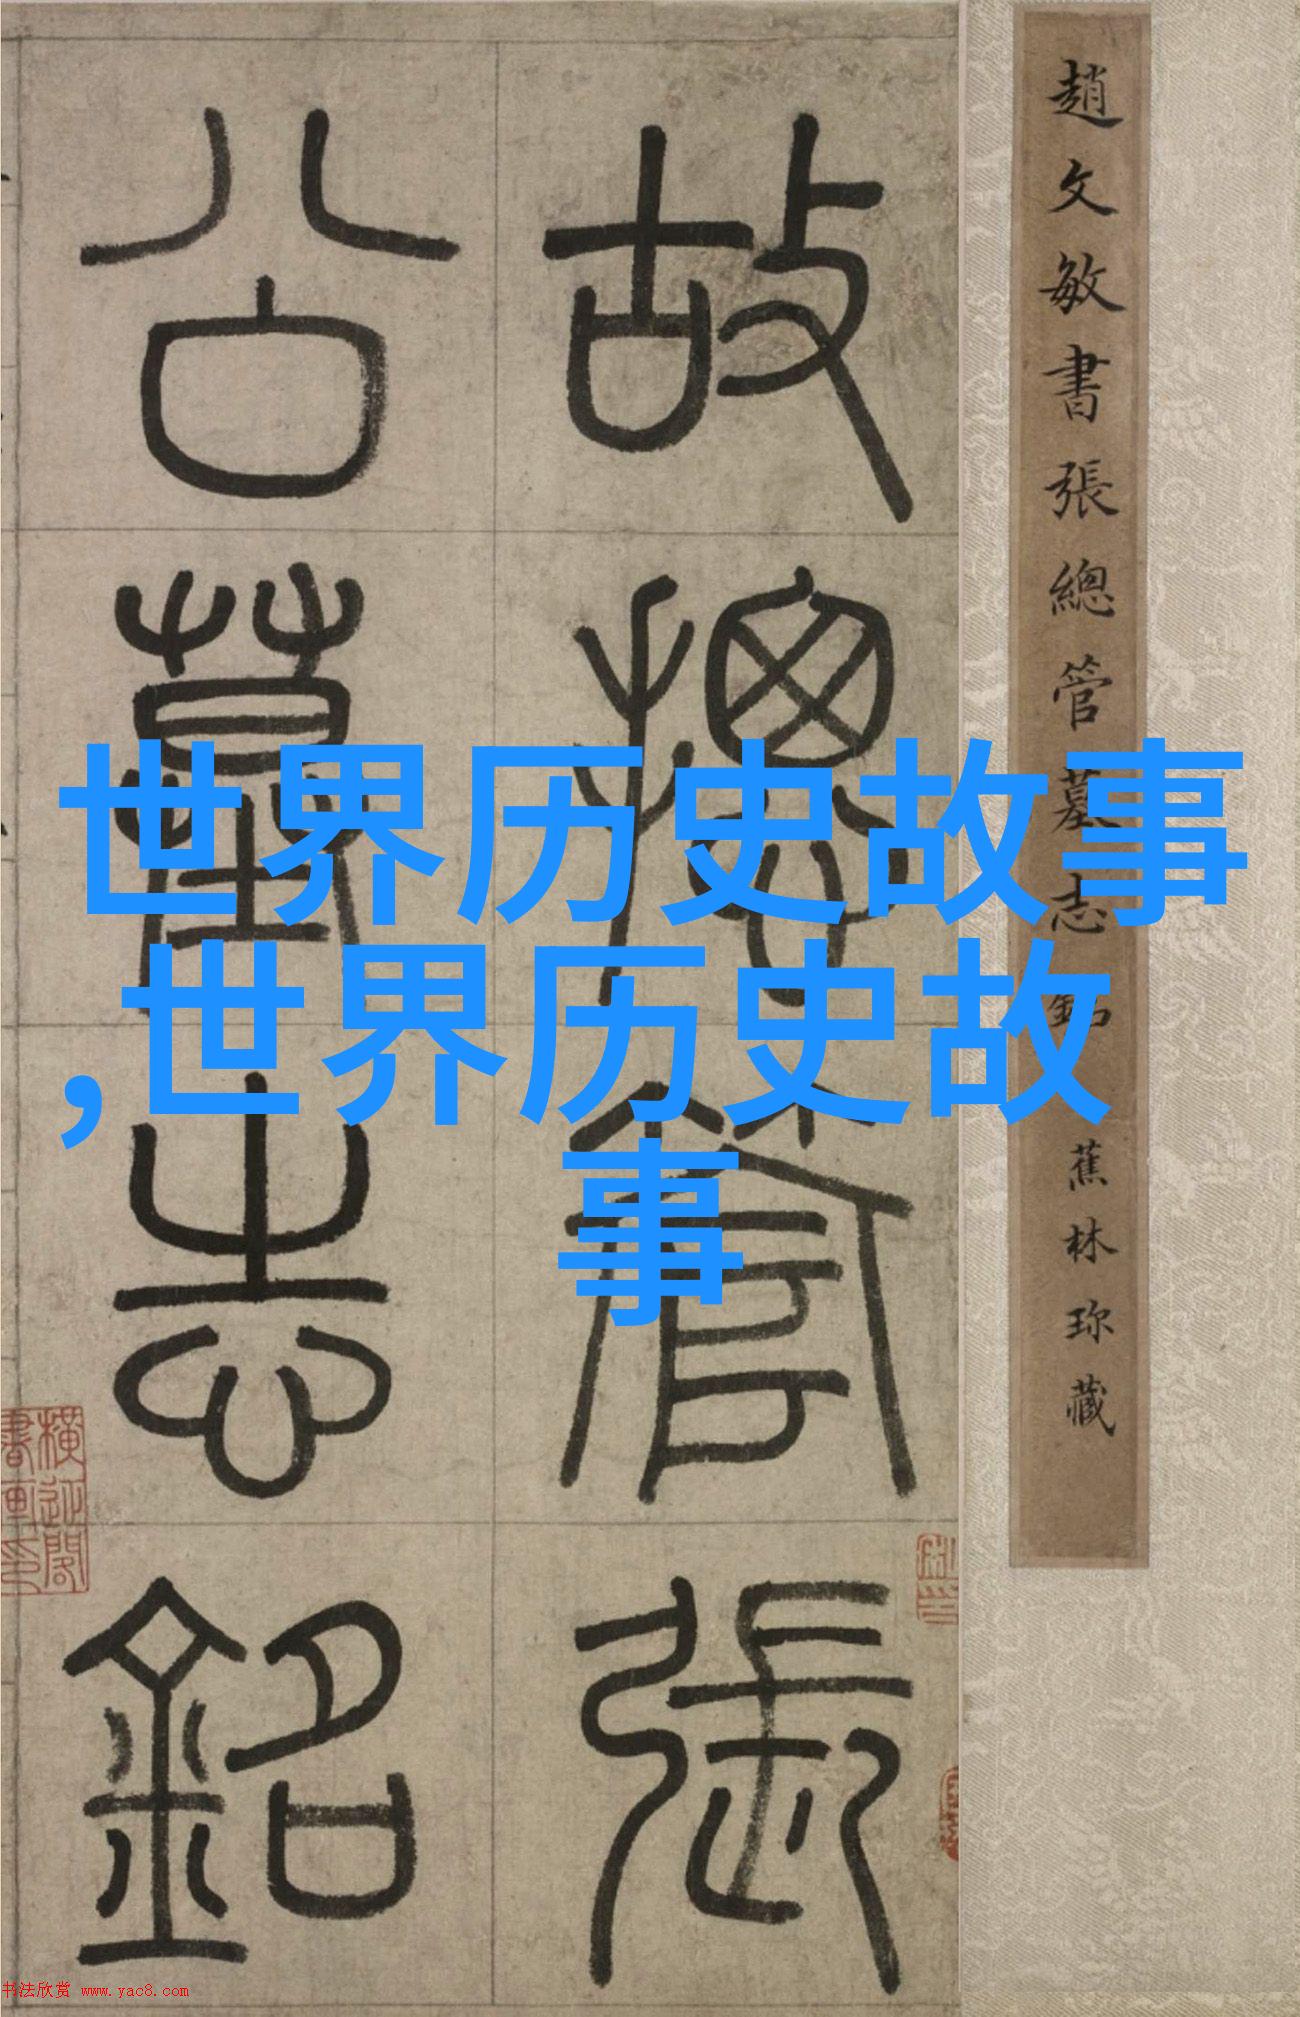 趙文敏書張總管墓志銘 蕉林珎藏
故總管張
公墓志銘
世界历史故事
,世界历史故
事
书法欣赏 www.yac8.com